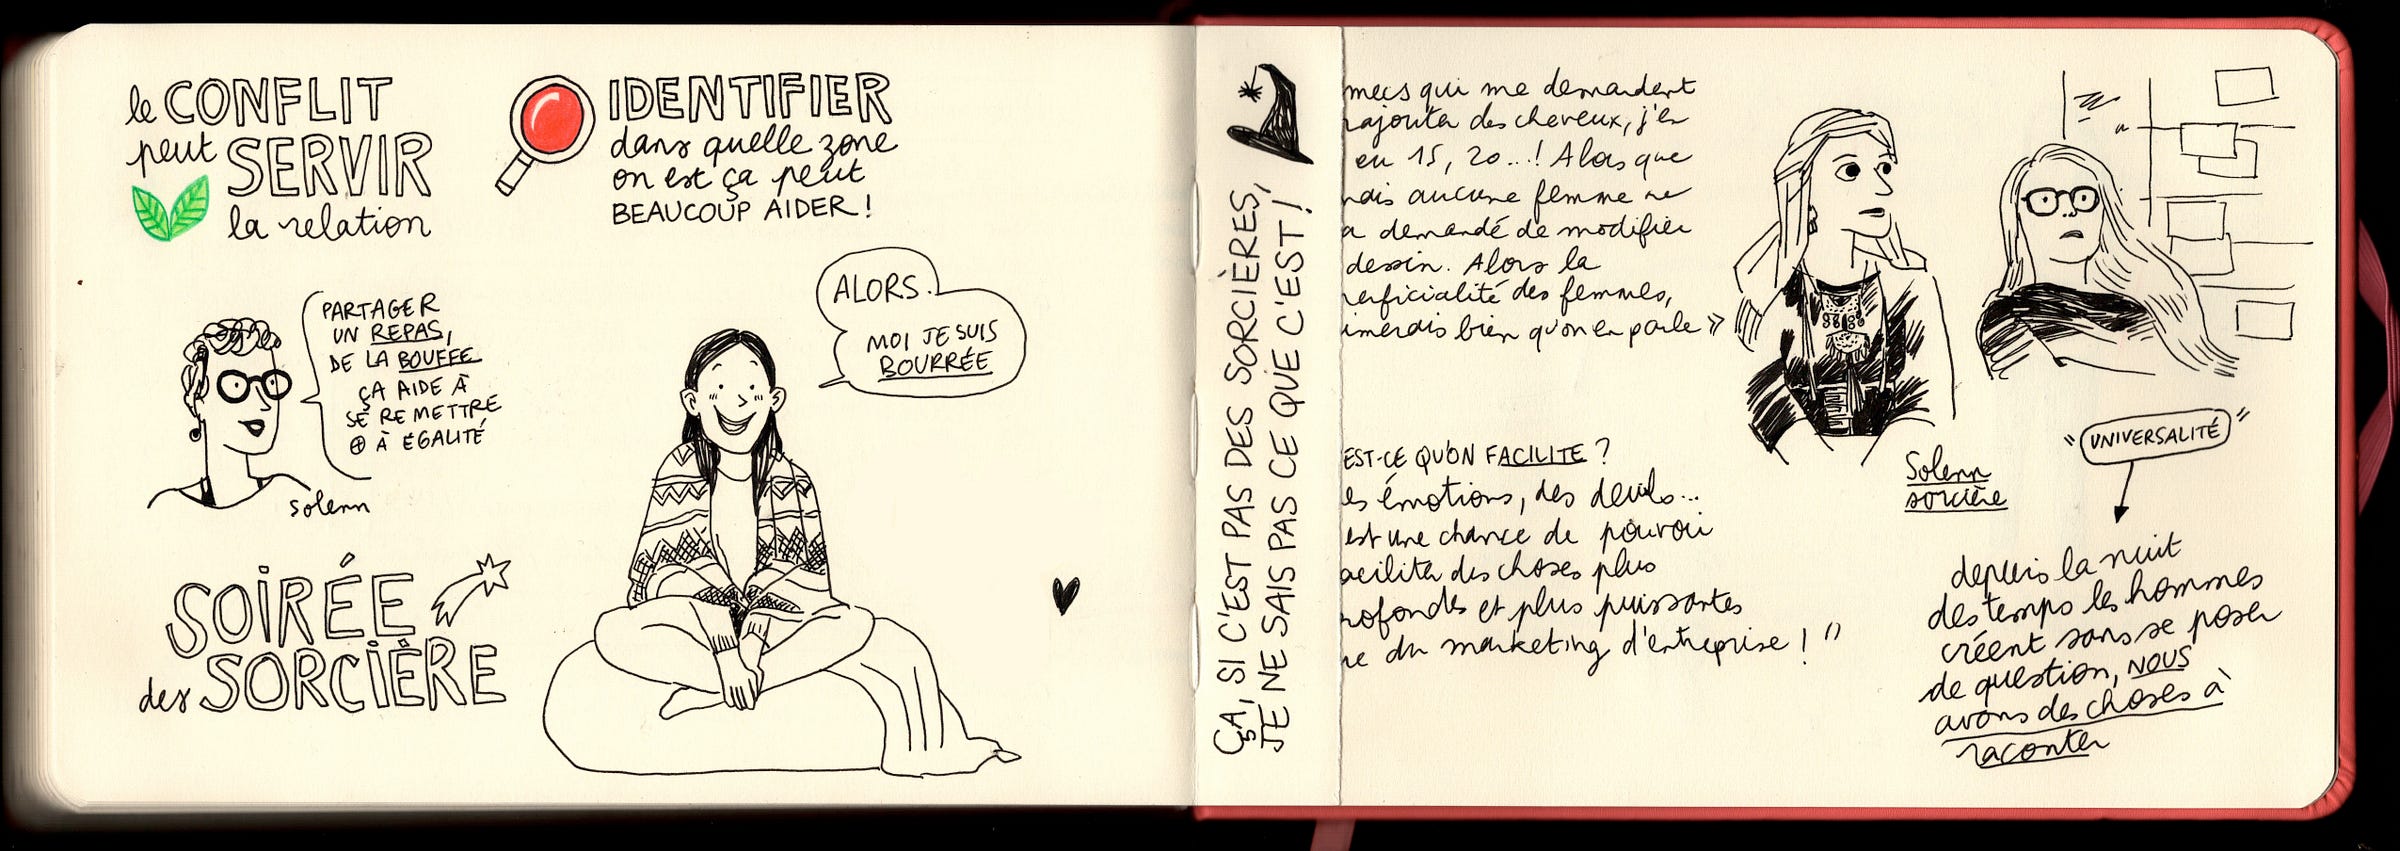 le CONFLIT
peut SERVIR
la relation
IDENTIFIER
dans quelle zone
on est ça peut
BEAUCOUP AIDER !
PARTAGER
UN REPAS,
DE LA BOUFFE
ÇA AIDE À
SE REMETTRE
À ÉGALITÉ
solenn
ALORS.
MOI JE SUIS
BOURRÉE
SOIRÉE
des SORCIÈRE
ÇA, SI C'EST PAS DES SORCIÈRES,
JE NE SAIS PAS CE QUE C'EST !
mecs qui me demandent
rajouter des cheveux, j'en
eu 15, 20...! Alors que
mais aucune femme ne
a demandé de modifier
dessin. Alors la
erficialité des femmes,
imerais bien qu'on en parle »
EST-CE QU'ON FACILITE ?
es émotions, des deuils...
est une chance de pouvoir
aciliter des choses plus
rofondes et plus puissantes
ue du marketing d'entreprise ! "
Solenn
sorcière
" UNIVERSALITÉ "
depuis la nuit
des temps les hommes
créent sans se poser
de question, NOUS
avons des choses à
raconter